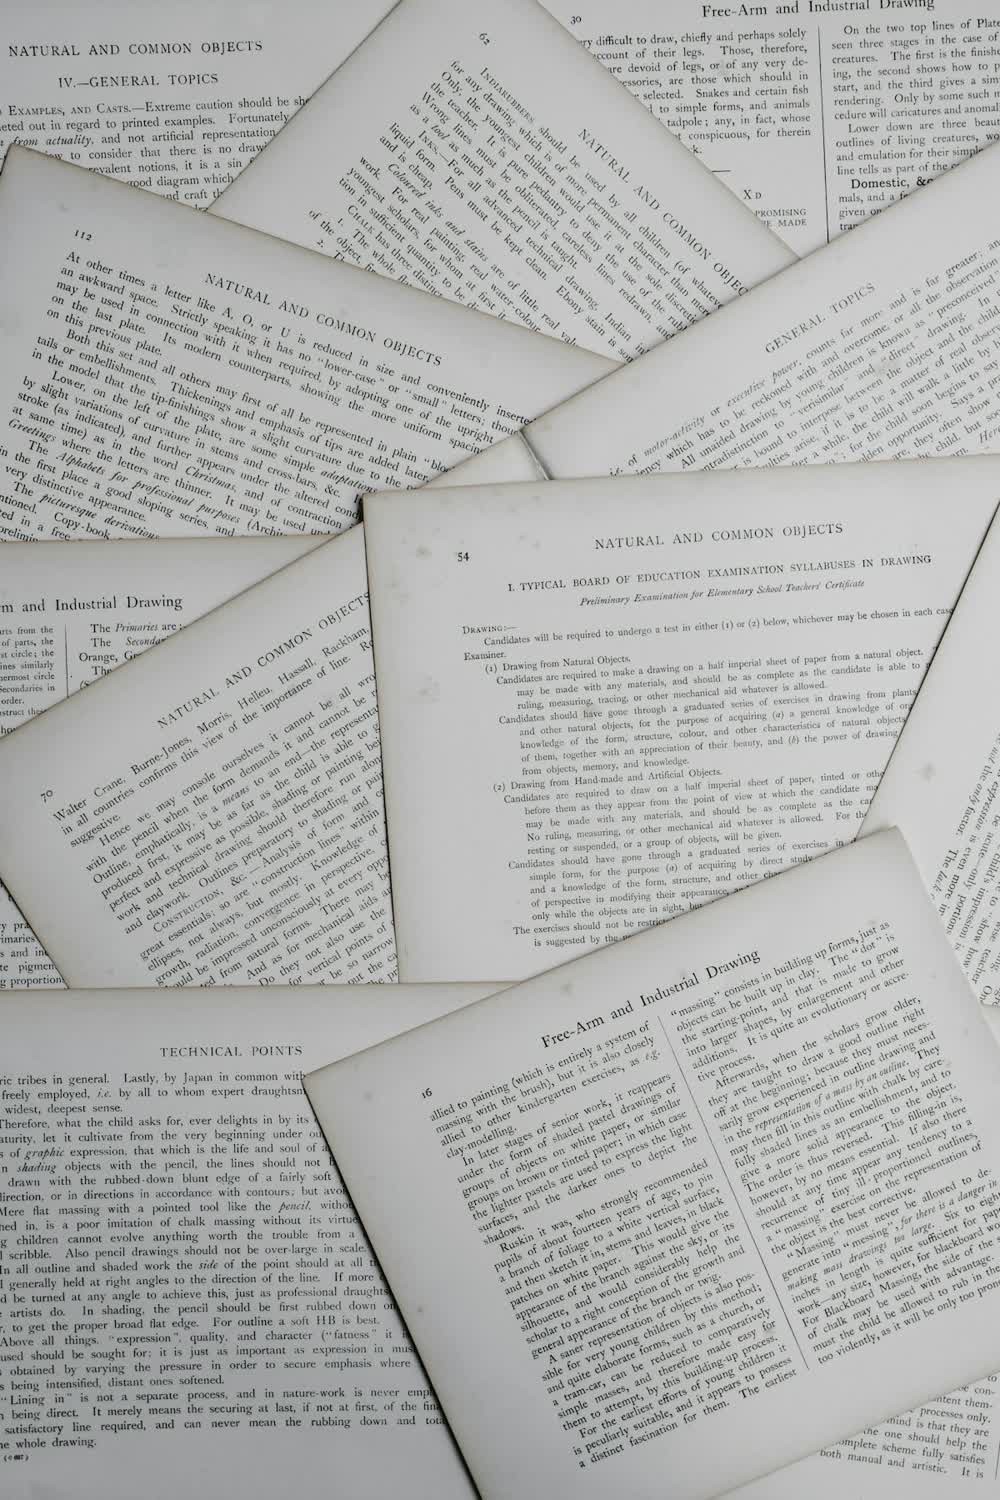 NATURAL AND COMMON OBJECTS
IV.—GENERAL TOPICS
EXAMPLES, AND CASTS.—Extreme caution should be
out in regard to printed examples. Fortunately
from actuality, and not artificial representation
to consider that there is no
notions, it is a sin
good diagram which
and craft
62
NATURAL AND COMMON
INDIARUBBERS should be used by all children (of
for any drawing which is of more permanent character than
Only the youngest children would use it at the sole
the teacher. It is pure pedantry to deny the use of the
Wrong lines must be obliterated, careless lines redrawn,
as a tool as much as the pencil is taught.
INKS.—For all advanced technical drawing, Indian
liquid form. Pens must be kept clean. Ebony stain is
and is cheap.
Coloured inks and stains are of little real
work. For real painting, real water-colour
youngest scholars, for whom at first,
tion in sufficient quantity to be
CHALK has three distinct
1. The whole
of the object,
2.
30
Free-Arm and Industrial Drawing
very difficult to draw, chiefly and perhaps solely
account of their legs. Those, therefore,
are devoid of legs, or of any very de-
are those which should in
selected. Snakes and certain fish
to simple forms, and animals
tadpole; any, in fact, whose
conspicuous, for therein
X D
PROMISING
MADE
On the two top lines of
seen three stages in the case of
creatures. The first is the
ing, the second shows how to
start, and the third gives a
rendering. Only by some such
cedure will caricatures and
Lower down are three
outlines of living creatures,
and emulation for their
line tells as part of the
Domestic,
mals, and a
given on
112
NATURAL AND COMMON OBJECTS
At other times a letter like A, O, or U is reduced in size and conveniently
an awkward space. Strictly speaking it has no "lower-case" or "small" letters;
may be used in connection with it when required, by adopting one of the upright
on the last plate. Its modern counterparts, showing the more uniform
on this previous plate.
Both this set and all others may first of all be represented in plain
tails or embellishments. Thickenings and emphasis of tips are added later,
in the model that the tip-finishings show a slight curvature due to the
Lower, on the left of the plate, are some simple adaptations
by slight variations of curvature in stems and cross-bars, &c.
stroke (as indicated), and further appears under the altered
at same time) as in the word Christmas, and of contraction
Greetings where the letters are thinner. It may be used
The Alphabets for professional purposes
in the first place a good sloping series, and
very distinctive appearance.
The picturesque derivations
Copy-book
in a free
GENERAL TOPICS
of motor-activity or executive power, counts far more and is far greater;
which has to be reckoned with and overcome, or all the observation
All unaided drawing by young children is known as "preconceived
to "verisimilar" and "direct" drawing. In
is bound to interpose between the object and the
arise, if it is to be a matter of real
a while, the child will walk a little by
for the child soon begins to say
opportunity. Says a
they often show
child, but
Here
54
NATURAL AND COMMON OBJECTS
I. TYPICAL BOARD OF EDUCATION EXAMINATION SYLLABUSES IN DRAWING
Preliminary Examination for Elementary School Teachers' Certificate
DRAWING:—
Candidates will be required to undergo a test in either (1) or (2) below, whichever may be chosen in each
Examiner.
(1) Drawing from Natural Objects.
Candidates are required to make a drawing on a half imperial sheet of paper from a natural object.
may be made with any materials, and should be as complete as the candidate is able to
ruling, measuring, tracing, or other mechanical aid whatever is allowed.
Candidates should have gone through a graduated series of exercises in drawing from plants
and other natural objects, for the purpose of acquiring (a) a general knowledge of
knowledge of the form, structure, colour, and other characteristics of natural objects
of them, together with an appreciation of their beauty, and (b) the power of drawing
from objects, memory, and knowledge.
(2) Drawing from Hand-made and Artificial Objects.
Candidates are required to draw on a half imperial sheet of paper, tinted or
before them as they appear from the point of view at which the candidate
may be made with any materials, and should be as complete as the
No ruling, measuring, or other mechanical aid whatever is allowed. For the
resting or suspended, or a group of objects, will be given.
Candidates should have gone through a graduated series of exercises in
simple form, for the purpose (a) of acquiring by direct study
and a knowledge of the form, structure, and other
of perspective in modifying their appearance,
only while the objects are in sight,
The exercises should not be
is suggested by the
m and Industrial Drawing
parts from the
of parts, the
st circle; the
ines similarly
nermost circle
Secondaries in
order.
The Primaries are:
The
Orange,
The
70
NATURAL AND COMMON OBJECTS
Walter Crane, Burne-Jones, Morris, Helleu, Hassall, Rackham
in all countries confirms this view of the importance of line.
suggestive.
Hence we may console ourselves it cannot be all
with the pencil when the form demands it and cannot be
Outline, emphatically, is a means to an end—the
produced first, it may be as far as the child is able to
perfect and expressive as possible, shading or painting
work and technical drawing should therefore run
and claywork. Outlines preparatory to shading or
CONSTRUCTION, &c.—Analysis of form and
great essentials; so are "construction lines" within
ellipses, not always, but mostly. Knowledge of
growth, radiation, convergence in perspective,
should be impressed unconsciously at every
from natural forms. There may be
And as for mechanical aids
they not also use the
for vertical points of
be so narrow
out the
TECHNICAL POINTS
tribes in general. Lastly, by Japan in common with
freely employed, i.e. by all to whom expert
widest, deepest sense.
Therefore, what the child asks for, ever delights in by its
let it cultivate from the very beginning under
of graphic expression, that which is the life and soul of
shading objects with the pencil, the lines should not
drawn with the rubbed-down blunt edge of a fairly soft
direction, or in directions in accordance with contours; but
Mere flat massing with a pointed tool like the pencil,
in, is a poor imitation of chalk massing without its
children cannot evolve anything worth the trouble from a
scribble. Also pencil drawings should not be over-large in scale.
In all outline and shaded work the side of the point should at all
generally held at right angles to the direction of the line. If more
be turned at any angle to achieve this, just as professional
artists do. In shading, the pencil should be first rubbed down
to get the proper broad flat edge. For outline a soft HB is best.
Above all things, "expression", quality, and character ("fatness" it
used should be sought for; it is just as important as expression in
obtained by varying the pressure in order to secure emphasis where
being intensified, distant ones softened.
"Lining in" is not a separate process, and in nature-work is never
being direct. It merely means the securing at last, if not at first, of the
satisfactory line required, and can never mean the rubbing down and
whole drawing.
16
Free-Arm and Industrial Drawing
allied to painting (which is entirely a system of
massing with the brush), but it is also closely
allied to other kindergarten exercises, as e.g.
clay-modelling.
In later stages of senior work, it reappears
under the form of shaded pastel drawings of
groups of objects on white paper, or similar
groups on brown or tinted paper; in which case
the lighter pastels are used to express the light
surfaces, and the darker ones to depict the
shadows.
Ruskin it was, who strongly recommended
pupils of about fourteen years of age, to pin
a branch of foliage to a white vertical surface,
and then sketch it in, stems and leaves, in black
patches on white paper. This would give the
appearance of the branch against the sky, or its
silhouette, and would considerably help the
scholar to a right conception of the growth and
general appearance of the branch or twig.
A saner representation of objects is also pos-
sible for very young children by this method;
and quite elaborate forms, such as a church, or
a tram-car, can be reduced to comparatively
simple masses, and therefore made easy for
them to attempt, by this building-up process.
For the earliest efforts of young children it
is peculiarly suitable, and it appears to possess
a distinct fascination for them. The earliest
"massing" consists in building up forms, just as
objects can be built up in clay. The "dot" is
the starting-point, and that is made to grow
into larger shapes, by enlargement and other
additions. It is quite an evolutionary or accre-
tive process.
Afterwards, when the scholars grow older,
they are taught to draw a good outline right
off at the beginning; because they must neces-
sarily grow experienced in outline drawing and
in the representation of a mass by an outline. They
may then fill in this outline with chalk by care-
fully shaded lines as an embellishment, and to
give a more solid appearance to the object.
The order is thus reversed. This filling-in is,
however, by no means essential. If also there
should at any time appear any tendency to a
recurrence of tiny ill-proportioned outlines,
a "massing" exercise on the representation of
the object is the best corrective.
"Massing" must never be allowed to de-
generate into "messing", for there is a danger in
making mass drawings too large. Six to
inches in length is quite sufficient for
work—any size, however, for blackboard
For Blackboard Massing, the side of the
of chalk may be used with advantage.
must the child be allowed to rub in the
too violently, as it will be only too